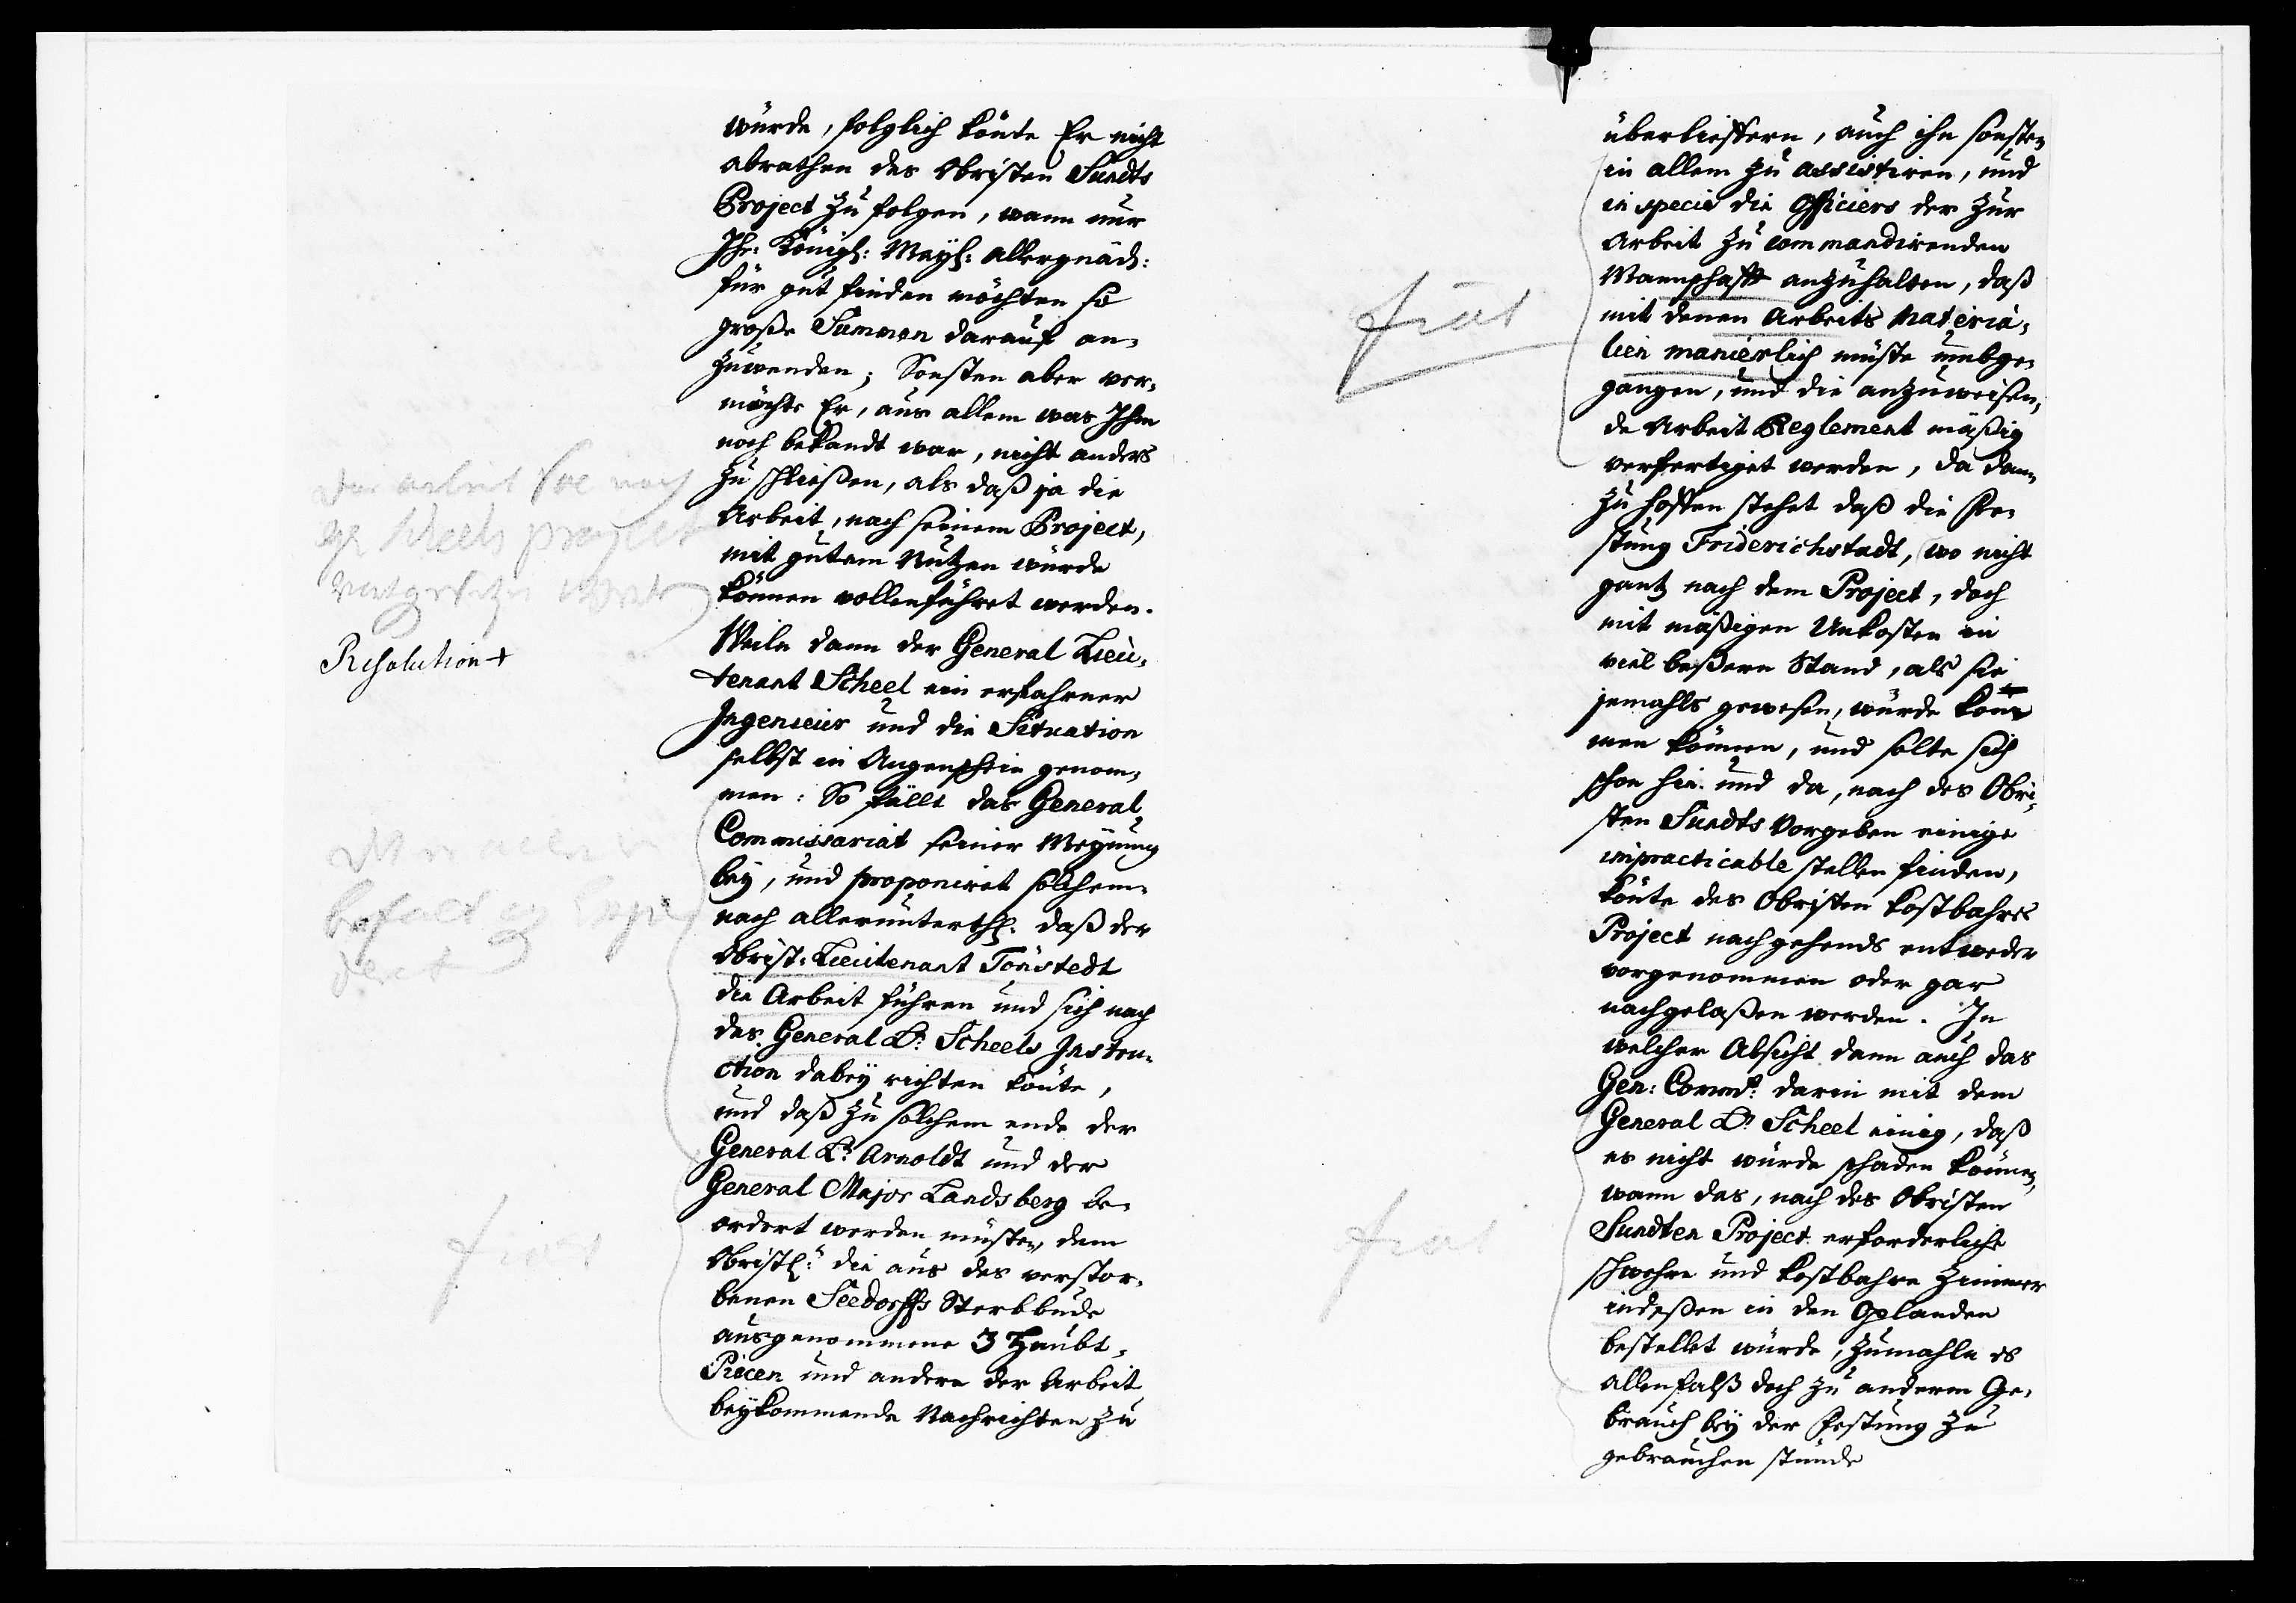 würde, folglich könte Er nicht
abrathen des Obristen Sundts
Project zu folgen, wann nur
Ihr: Königl: Mayt: allergnäd:
für gut finden möchten so
große Summen darauf an-
zuwenden; Sonsten aber ver-
möchte Er, aus allem was Ihm
noch bekandt war, nicht anders
zu schließen, als daß ja die
Arbeit, nach seinem Project,
mit gutem Nutzen würde
können vollenführet werden.
Weiln dann der General Lieu-
tenant Scheel ein erfahrner
Ingenieur und die Situation
selbst in Augenschein genom-
men: So fällt das General
Commissariat seiner Meynung
bey, und proponiret solchem-
nach allerunterthl: daß der
Obrist-Lieutenant Tönstedt
die Arbeit führen und sich nach
des General Lt: Scheels Instru-
ction dabey richten könte,
und daß zu solchem ende der
General Lt: Arnoldt und der
General Major Landsberg be-
ordert werden müsten, dem
Obristl: die aus des verstor-
benen Seedorffs Sterbbude
ausgenommene 3 Haubt-
Piecen und andere der Arbeit
beykommende Nachrichten zu
arbeit nach
Scheels project
Resolution +
fiat
überlieffern, auch ihn sonsten
in allem zu assistiren, und
in specie die Officiers der zur
Arbeit zu commandirenden
Mannschafft anzuhalten, daß
mit denen Arbeits Materia-
lien manierlich müste umbge-
gangen, und die anzuweisen-
de Arbeit Reglement mäßig
verfertiget werden, da dann
zu hoffen stehet daß die Fe-
stung Friderichstadt, wo nicht
gantz nach dem Project, doch
mit mäßigen Unkosten in
viel beßern Stand, als sie
jemahls gewesen, würde kom-
men können, und solte sich
schon hie- und da, nach des Obri-
sten Sundts Vorgeben einige
impracticable stellen finden,
könte des Obristen kostbahres
Project nachgehends entweder
vorgenommen oder gar
nachgelaßen werden. In
welcher Absicht dann auch das
Gen: Commt: darin mit dem
General Lt: Scheel einig, daß
es nicht würde schaden können,
wann das, nach des Obristen
Sundten Project erforderliche
schwehre und kostbahre Zimmer
indeßen in den Gelanden
bestellet würde, zumahln es
allenfalß doch zu anderm Ge-
brauch bey der Festung zu
gebrauchen stünde
fiat
fiat